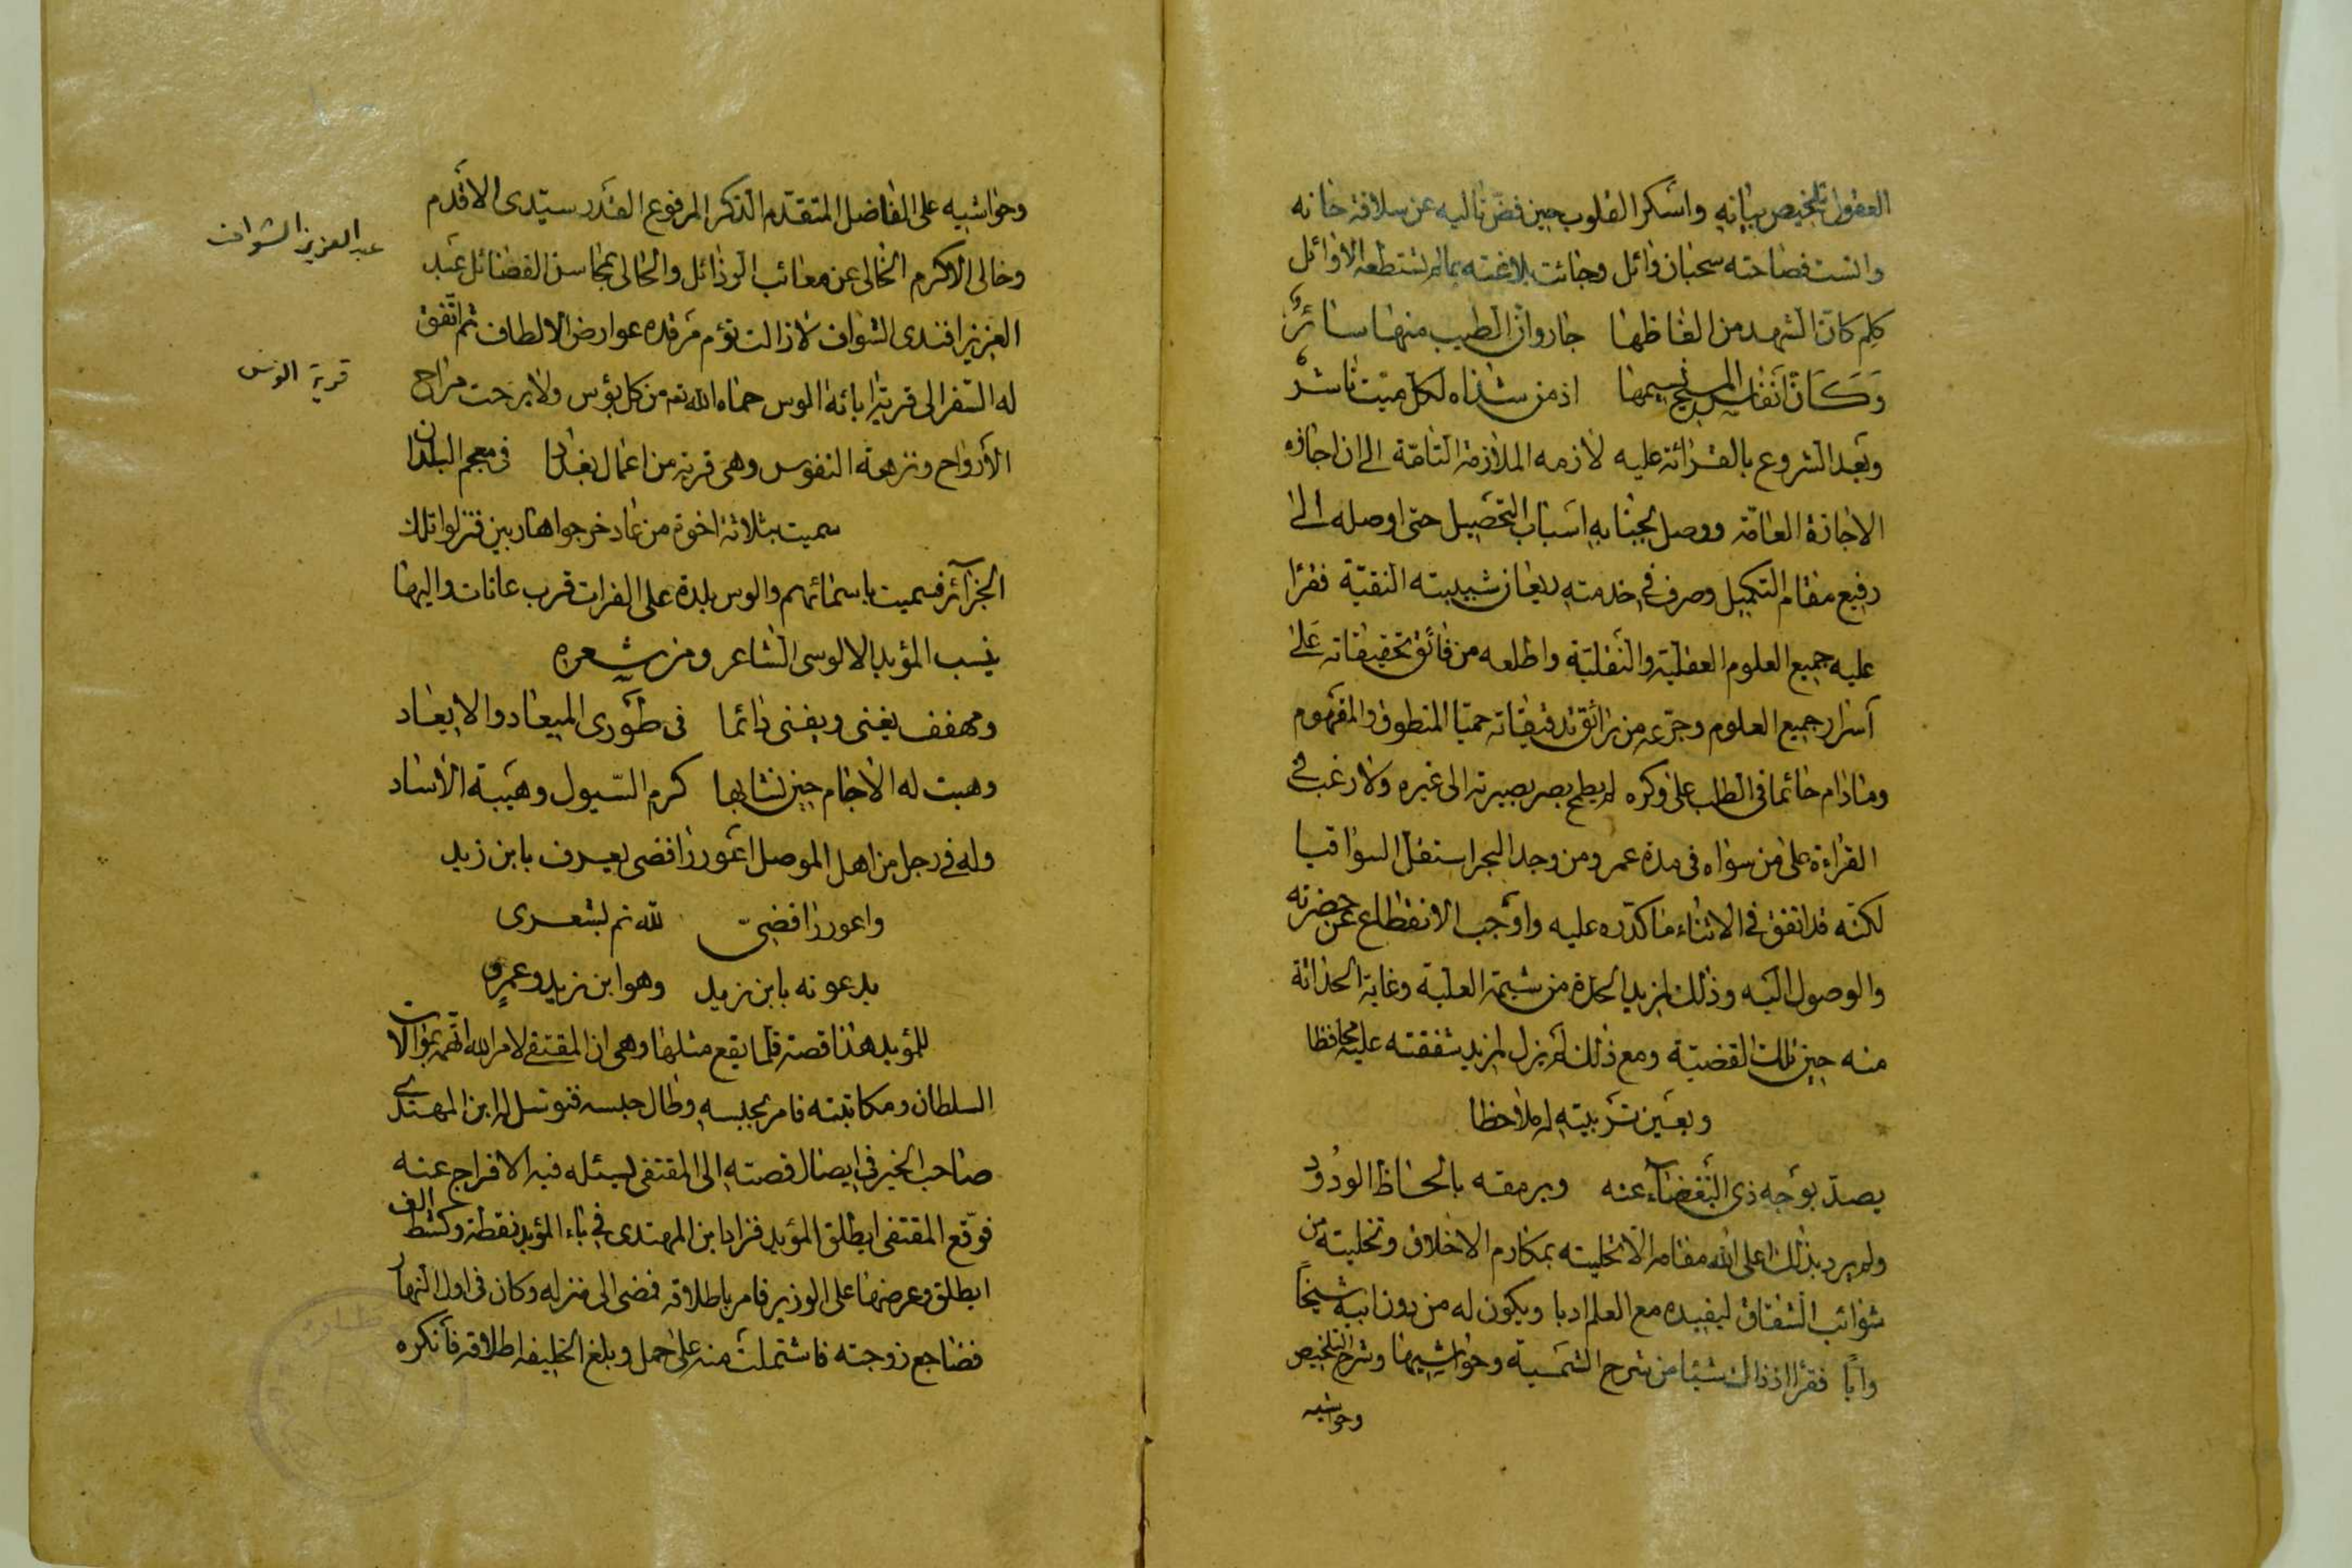 العقول بتلخيص بيانه واسكر القلوب حين فض تاليه عن سلافة حانه
وانست فصاحته سحبان وائل وجائت بلاغته بمالم تستطعه الاوائل
كلم كانّ الشهد من الفاظها جار وانّ الطيب منها سائرُ
وَكَانّ انفاس المسيح نسيمها اذ من شذاه لكل ميّت ناشرُ
وبعد الشروع بالقرائة عليه لازمه الملازمة التامّة الى ان اجازه
الاجازة العامّة ووصل بجنابه اسباب التحصيل حتى اوصله الى
رفيع مقام التكميل وصرف في خدمته ريعان شبيبته النقيّة فقرأ
عليه جميع العلوم العقليّة والنقليّة واطلعه من فائق تحقيقاته على
اسرار جميع العلوم وجرّعه من رائق تدقيقاته حميّا المنطوق والمفهوم
ومادام حائما في الطلب على وكره لم يطمح بصر بصيرته الى غيره ولا رغب في
القراءة على من سواه في مدة عمره ومن وجد البحر استقلّ السواقيا
لكنّه قد اتفق في الاثناء ما كدّره عليه واوجب الانقطاع عن حضرته
والوصول اليه وذلك لمزيد الحدّة من شيمته العليّة وغاية الحداثة
منه حين تلك القضيّة ومع ذلك لم يزل لمزيد شفقته عليه محافظا
وبعين تربيته له ملاحظا
يصدّ بوجه ذى البغضاء عنه ويرمقه بالحاظ الودُود
ولم يرد بذلك اعلى الله مقامه الا تحليته بمكارم الاخلاق وتخليته من
شوائب الشقاق ليفيده مع العلم ادبا ويكون له من دون ابيه شيخاً
واباً فقرأ اذ ذاك شيئا من شرح الشمسية وحواشيها وشرح التلخيص
وحواشيه
وحواشيه على الفاضل المتقدم الذكر المرفوع القدر سيّدى الاقدم
وخالى الاكرم الخالى عن معائب الرذائل والحالى بمحاسن الفضائل عبد
العزيز افندى الشواف لازالت تؤم مرقده عوارض الالطاف ثم اتّفق
له السّفر الى قرية ابائه الوس حماه الله تعـ من كل بؤس ولا برحت مراح
الارواح ونزهة النفوس وهى قرية من اعمال بغداد في معجم البلدان
سميت بثلاثة اخوة من عاد خرجوا هاربين فنزلوا تلك
الجزائر فسميت باسمائهم والوس بلدة على الفرات قرب عانات واليها
ينسب المؤيد الالوسى الشاعر ومن شعره
ومهفف يغنى ويفنى دائما فى طورى الميعاد والايعاد
وهبت له الاجام حين نشا بها كرم السّيول وهيبة الاساد
وله في رجل من اهل الموصل اعور رافضى يعرف بابن زيد
واعور رافضىّ لله ثم لشعرى
يدعونه بابن زيد وهو ابن زيد وعمرٍو
للمؤيد هذا قصة قلما يقع مثلها وهى ان المقتفى لامر الله اتّهمه بموالات
السلطان ومكاتبته فامر بحبسه وطال حبسه فتوسل له ابن المهتدى
صاحب الخبر في ايصال قصته الى المقتفى ليسئله فيه الافراج عنه
فوقّع المقتفى ايطلق المؤيد فزاد ابن المهتدى في باء المؤيد نقطة وكشط الف
ايطلق وعرضها على الوزير فامر باطلاقه فمضى الى منزله وكان فى اول النهار
فضاجع زوجته فاشتملت منه على حمل وبلغ الخليفه اطلاقه فانكره
عبد العزيز الشواف
قرية الوس